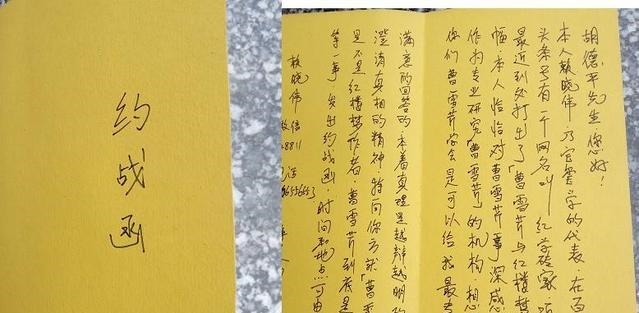 约战函
胡德平先生您好！
本人赖晓伟，乃官窖学的代表，在百
头条号有一个网名叫红学砖家
最近到处打出了「曹雪芹与红楼梦
幅，本人恰恰对「曹雪芹」事深感
作为专业研究「曹雪芹」的机构，想
你们曹雪芹学会是可以给我最
满意的回答的，本着真理是越辩越明
澄清真相的精神，特向你方就「曹雪
是不是红楼梦作者，曹雪芹到底是
等一事，发出约战函，时间和地点可由
赖晓伟
微信